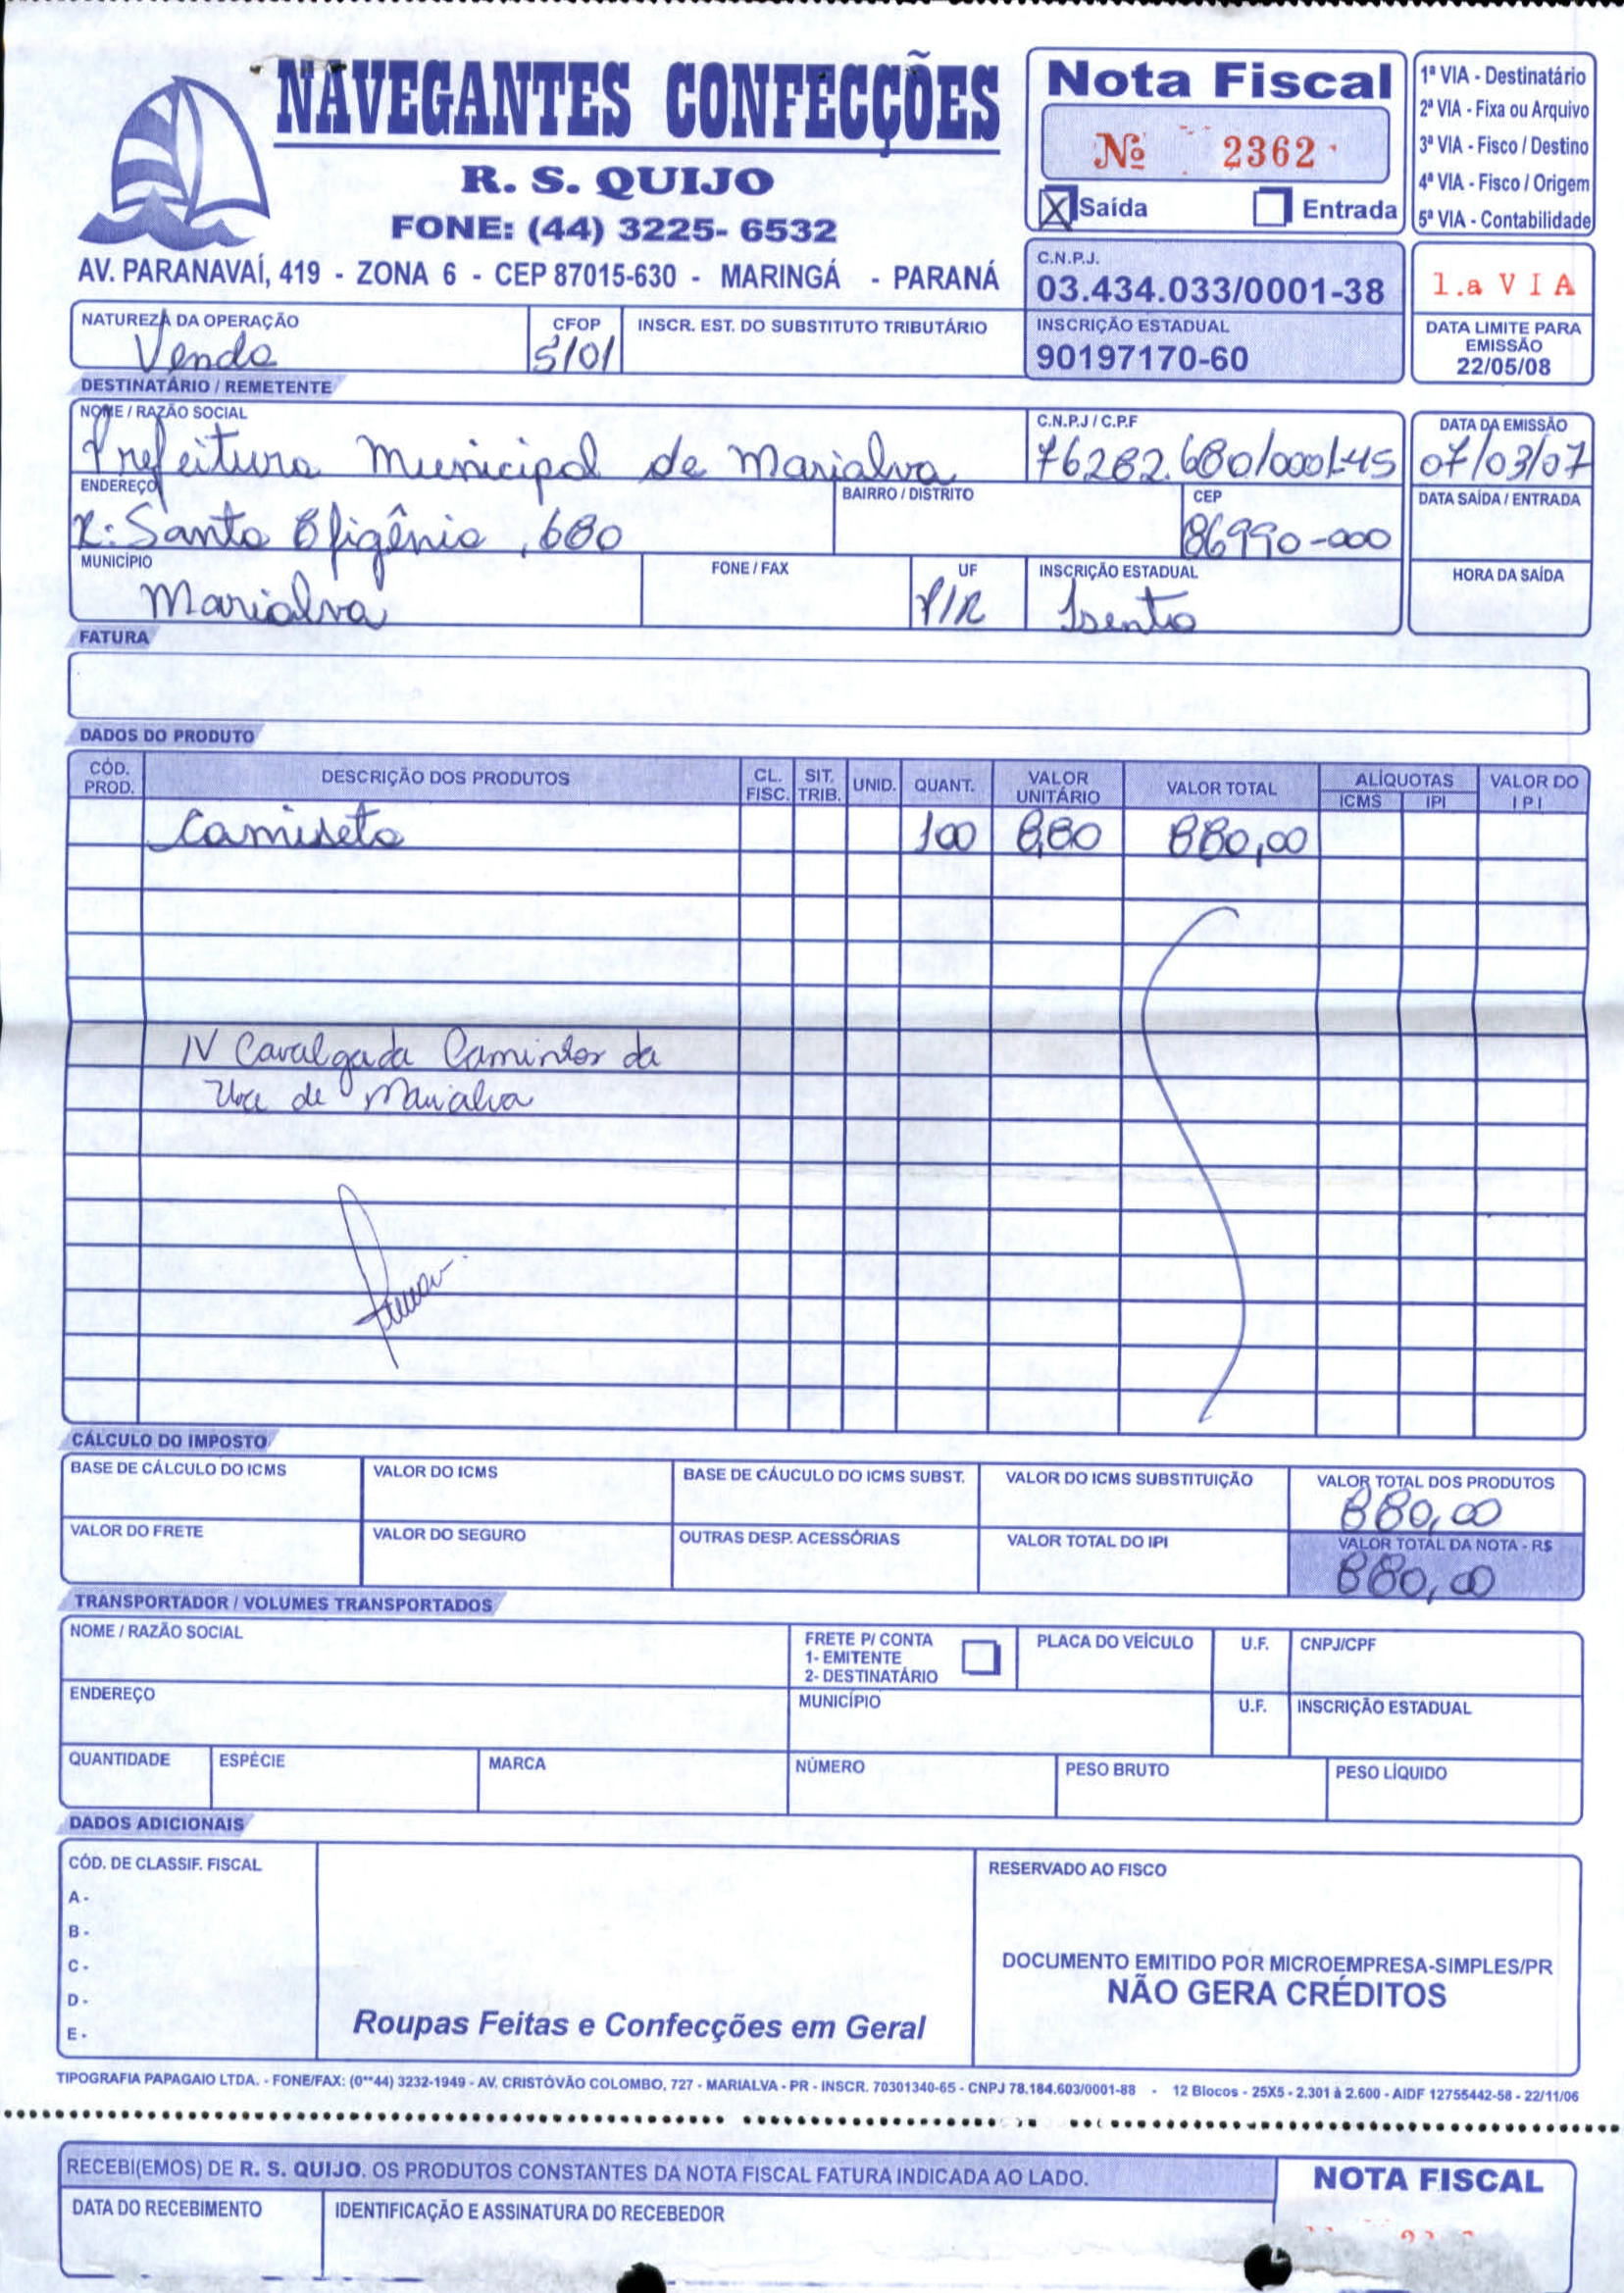 NAVEGANTES CONFECÇÕES
R. S. QUIJO
FONE: (44) 3225- 6532
AV. PARANAVAÍ, 419 - ZONA 6 - CEP 87015-630 - MARINGÁ - PARANÁ
Nota Fiscal
Nº 2362
X Saída Entrada
1ª VIA - Destinatário
2ª VIA - Fixa ou Arquivo
3ª VIA - Fisco / Destino
4ª VIA - Fisco / Origem
5ª VIA - Contabilidade
C.N.P.J.
03.434.033/0001-38
INSCRIÇÃO ESTADUAL
90197170-60
1.a VIA
DATA LIMITE PARA
EMISSÃO
22/05/08
NATUREZA DA OPERAÇÃO CFOP INSCR. EST. DO SUBSTITUTO TRIBUTÁRIO
Venda 5101
DESTINATÁRIO / REMETENTE
NOME / RAZÃO SOCIAL C.N.P.J / C.P.F DATA DA EMISSÃO
Prefeitura Municipal de Marialva 76282.680/0001-45 07/03/07
ENDEREÇO BAIRRO / DISTRITO CEP DATA SAÍDA / ENTRADA
R: Santa Efigênia, 680 86990-000
MUNICÍPIO FONE / FAX UF INSCRIÇÃO ESTADUAL HORA DA SAÍDA
Marialva P/R Isento
FATURA
DADOS DO PRODUTO
CÓD. PROD. DESCRIÇÃO DOS PRODUTOS CL. FISC. SIT. TRIB. UNID. QUANT. VALOR UNITÁRIO VALOR TOTAL ALÍQUOTAS ICMS IPI VALOR DO I P I
Camiseta 100 8,80 880,00
IV Cavalgada Caminhos da
Uva de Marialva
CÁLCULO DO IMPOSTO
BASE DE CÁLCULO DO ICMS VALOR DO ICMS BASE DE CÁUCULO DO ICMS SUBST. VALOR DO ICMS SUBSTITUIÇÃO VALOR TOTAL DOS PRODUTOS
880,00
VALOR DO FRETE VALOR DO SEGURO OUTRAS DESP. ACESSÓRIAS VALOR TOTAL DO IPI VALOR TOTAL DA NOTA - R$
880,00
TRANSPORTADOR / VOLUMES TRANSPORTADOS
NOME / RAZÃO SOCIAL FRETE P/ CONTA PLACA DO VEÍCULO U.F. CNPJ/CPF
1- EMITENTE
2- DESTINATÁRIO
ENDEREÇO MUNICÍPIO U.F. INSCRIÇÃO ESTADUAL
QUANTIDADE ESPÉCIE MARCA NÚMERO PESO BRUTO PESO LÍQUIDO
DADOS ADICIONAIS
CÓD. DE CLASSIF. FISCAL RESERVADO AO FISCO
A -
B -
C -
D -
E -
Roupas Feitas e Confecções em Geral
DOCUMENTO EMITIDO POR MICROEMPRESA-SIMPLES/PR
NÃO GERA CRÉDITOS
TIPOGRAFIA PAPAGAIO LTDA. - FONE/FAX: (0**44) 3232-1949 - AV. CRISTÓVÃO COLOMBO, 727 - MARIALVA - PR - INSCR. 70301340-65 - CNPJ 78.184.603/0001-88 - 12 Blocos - 25X5 - 2.301 à 2.600 - AIDF 12755442-58 - 22/11/06
RECEBI(EMOS) DE R. S. QUIJO. OS PRODUTOS CONSTANTES DA NOTA FISCAL FATURA INDICADA AO LADO.
NOTA FISCAL
DATA DO RECEBIMENTO IDENTIFICAÇÃO E ASSINATURA DO RECEBEDOR